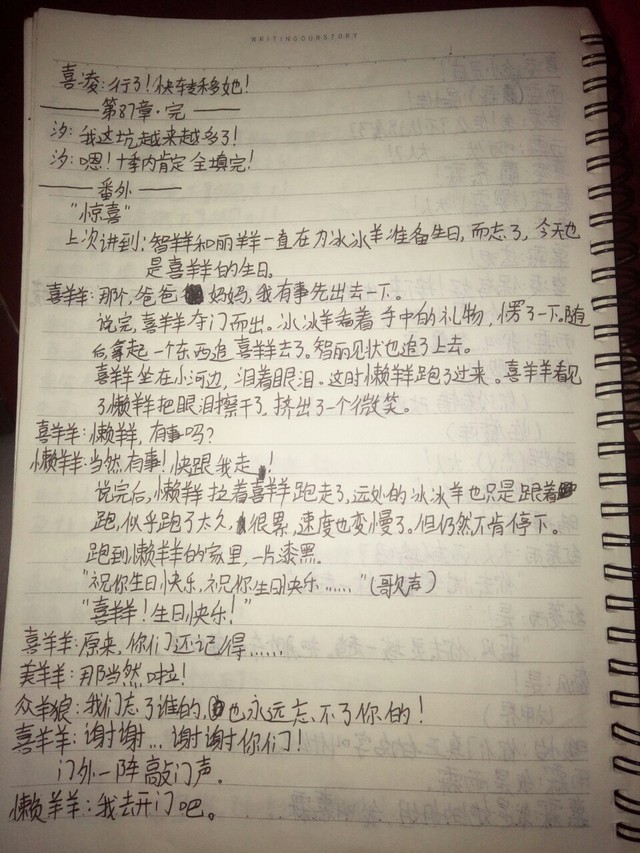 WRITINGOURSTORY
喜·凌:行了!快转移多她!
——第87章·完——
汐:我这坑越来越多了!
汐:嗯!十季内肯定全填完!
——番外——
"惊喜"
上次讲到:智羊羊和丽羊羊一直在为冰冰羊准备生日,而忘了,今天也
是喜羊羊的生日。
喜羊羊:那个,爸爸 妈妈,我有事先出去一下。
说完,喜羊羊夺门而出。冰冰羊看着手中的礼物,愣了一下。随
后,拿起一个东西追喜羊羊去了。智丽见状也追了上去。
喜羊羊坐在小河边,泪着眼泪。这时懒羊羊跑了过来。喜羊羊看见
了懒羊羊把眼泪擦干了,挤出了一个微笑。
喜羊羊:懒羊羊,有事吗?
懒羊羊:当然有事!快跟我走!
说完后,懒羊羊拉着喜羊羊跑走了,远处的冰冰羊也只是跟着
跑,似乎跑了太久,很累,速度也变慢了。但仍然不肯停下。
跑到懒羊羊的家里,一片漆黑。
"祝你生日快乐,祝你生日快乐……"(歌声)
"喜羊羊!生日快乐!"
喜羊羊:原来,你们还记得……
美羊羊:那当然啦!
众羊狼:我们忘了谁的,也永远忘不了你的!
喜羊羊:谢谢…谢谢你们!
门外一阵敲门声.
懒羊羊:我去开门吧。